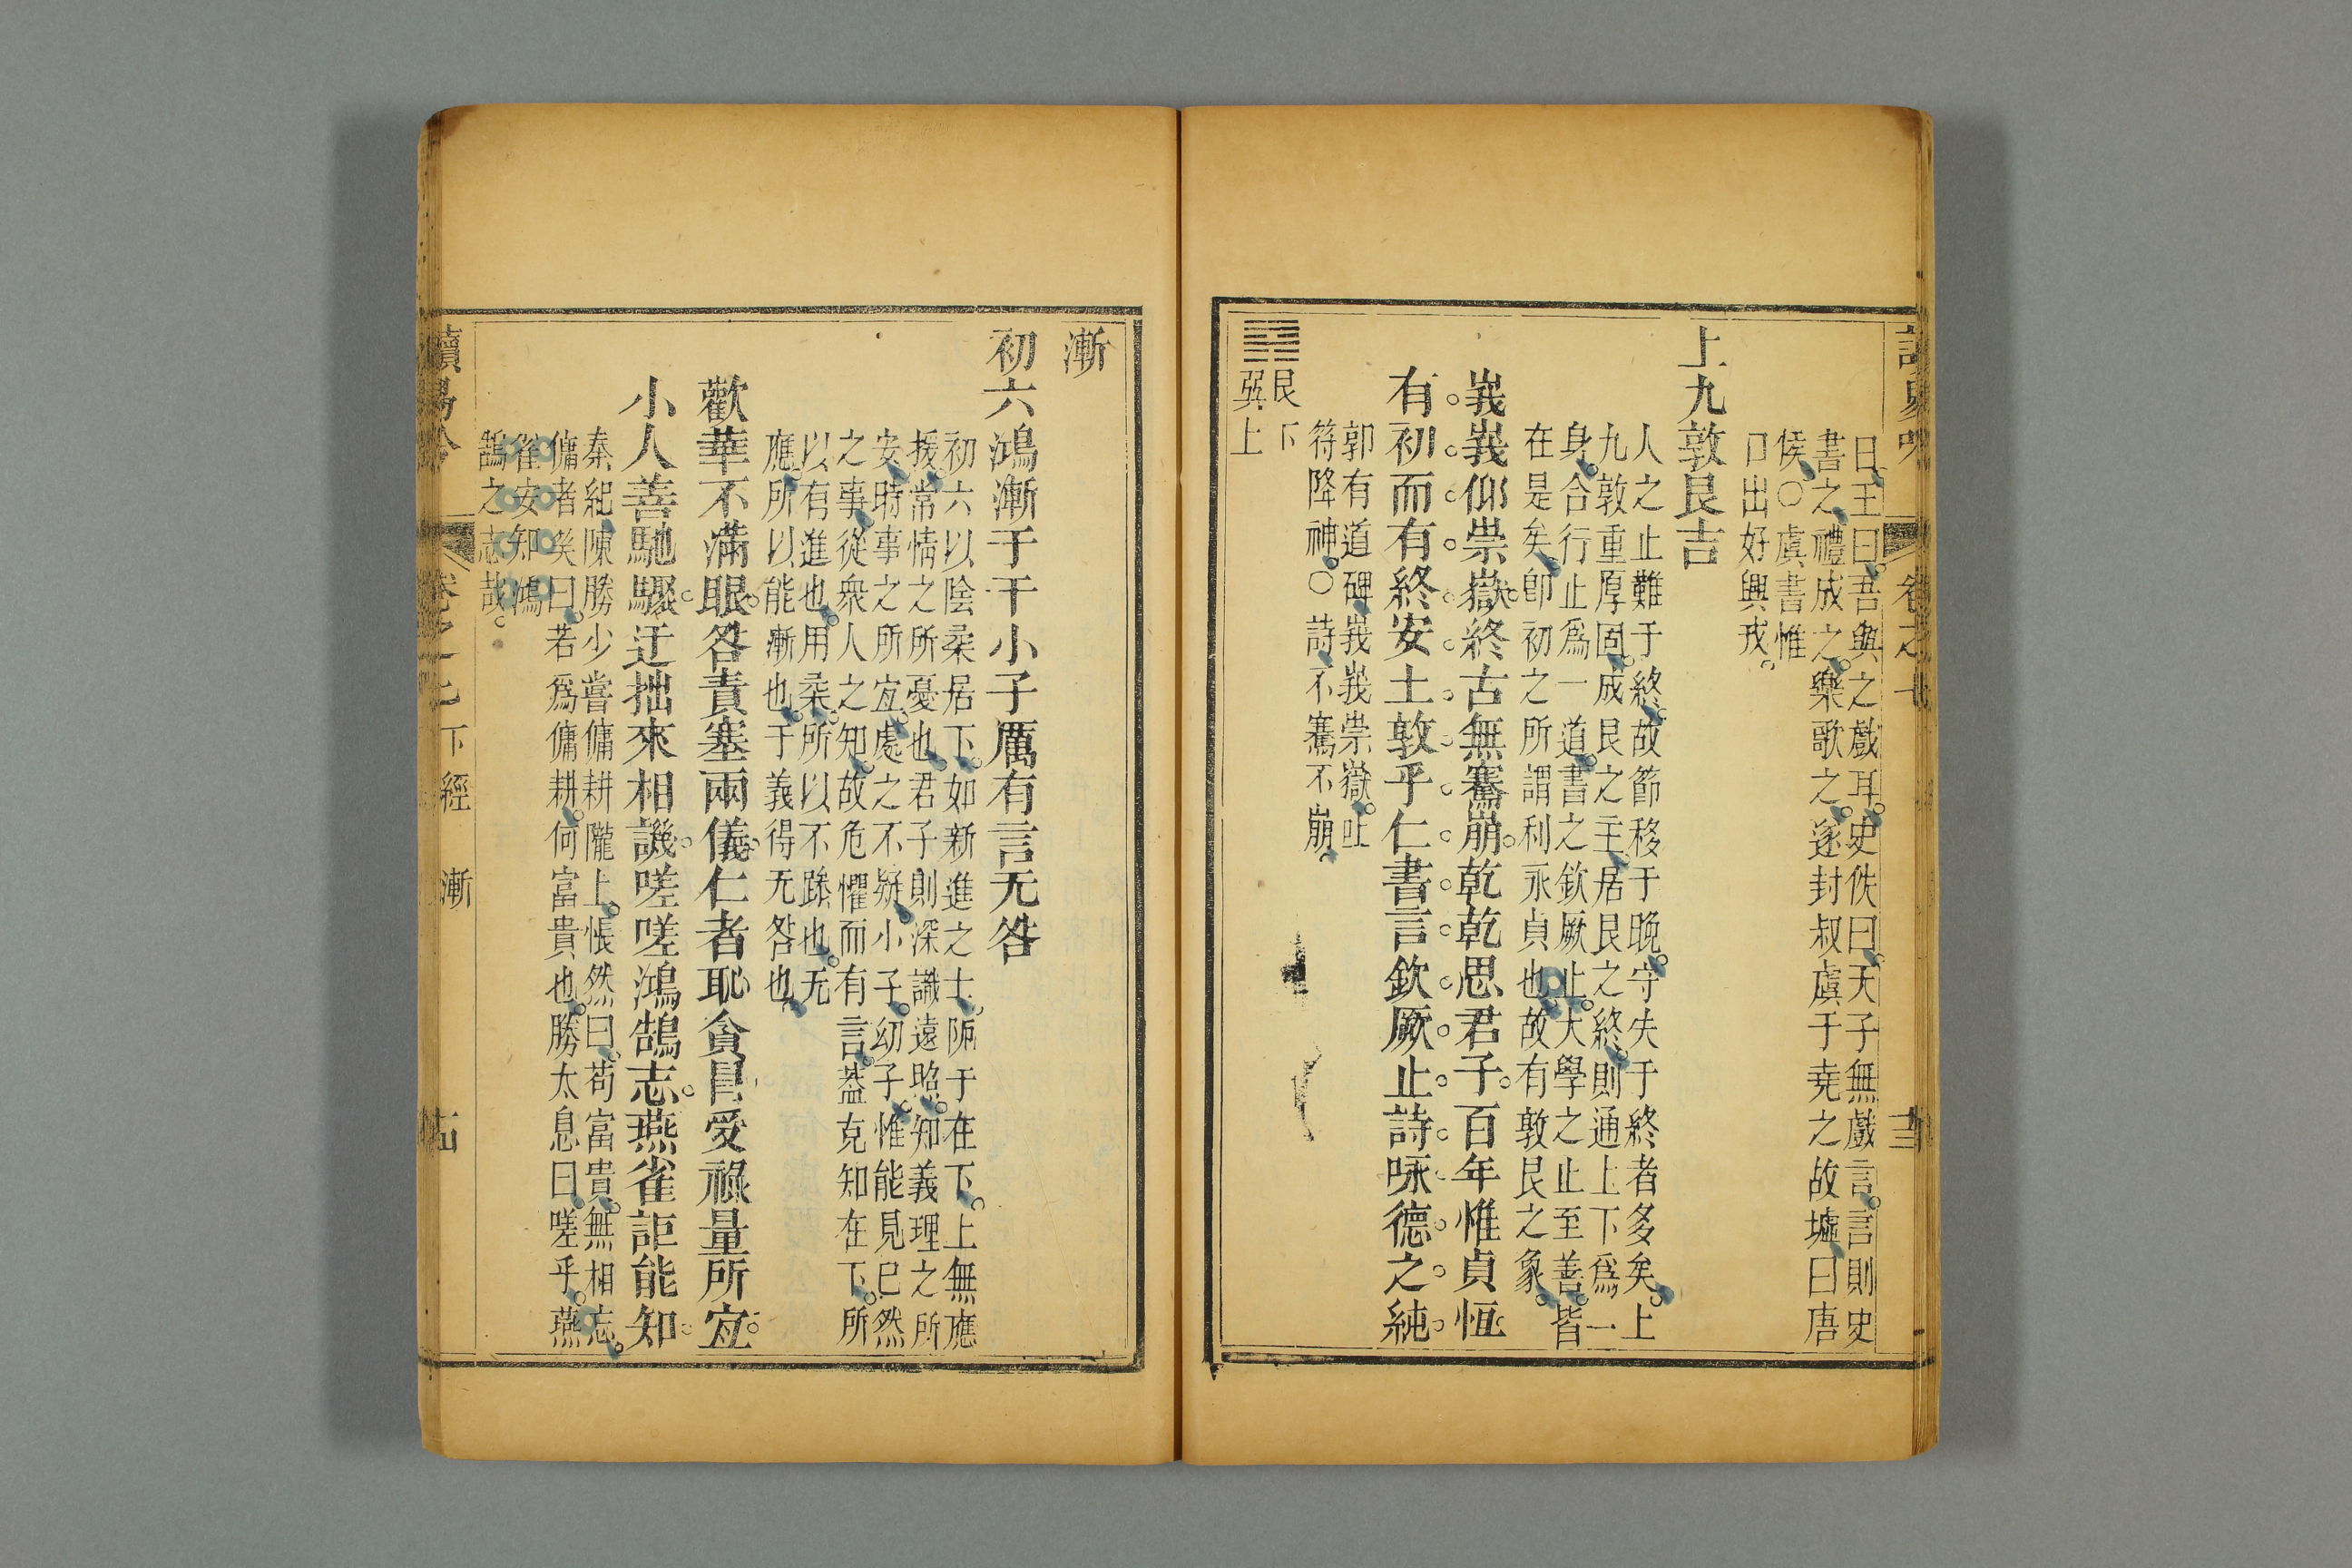 曰王曰吾與之戲耳史佚曰天子無戲言言則史
書之禮成之樂歌之遂封叔虞于堯之故墟曰唐
侯○虞書惟
口出好興戎
上九敦艮吉
人之止難于終故節移于晚守失于終者多矣上
九敦重厚固成艮之主居艮之終則通上下爲一
身合行止爲一道書之欽厥止大學之止至善皆
在是矣卽初之所謂利永貞也故有敦艮之象
峩峩仰崇嶽終古無騫崩乾乾思君子百年惟貞恆
有初而有終安土敦乎仁書言欽厥止詩咏德之純
郭有道碑峩峩崇嶽吐
符降神○詩不騫不崩
䷴艮下
巽上
漸
初六鴻漸于干小子厲有言无咎
初六以陰柔居下如新進之士阨于在下上無應
援常情之所憂也君子則深識遠照知義理之所
安時事之所宜處之不疑小子幼子惟能見已然
之事從衆人之知故危懼而有言葢克知在下所
以有進也用柔所以不躁也无
應所以能漸也于義得无咎也
歡華不滿眼咎責塞兩儀仁者恥貪冒愛祿量所宜
小人善馳驟迂拙來相譏嗟嗟鴻鵠志燕雀詎能知
秦紀陳勝少嘗傭耕隴上悵然曰苟富貴無相忘
傭者笑曰若爲傭耕何富貴也勝太息曰嗟乎燕
雀安知鴻
鵠之志哉
讀易吟 卷之七 下經 漸